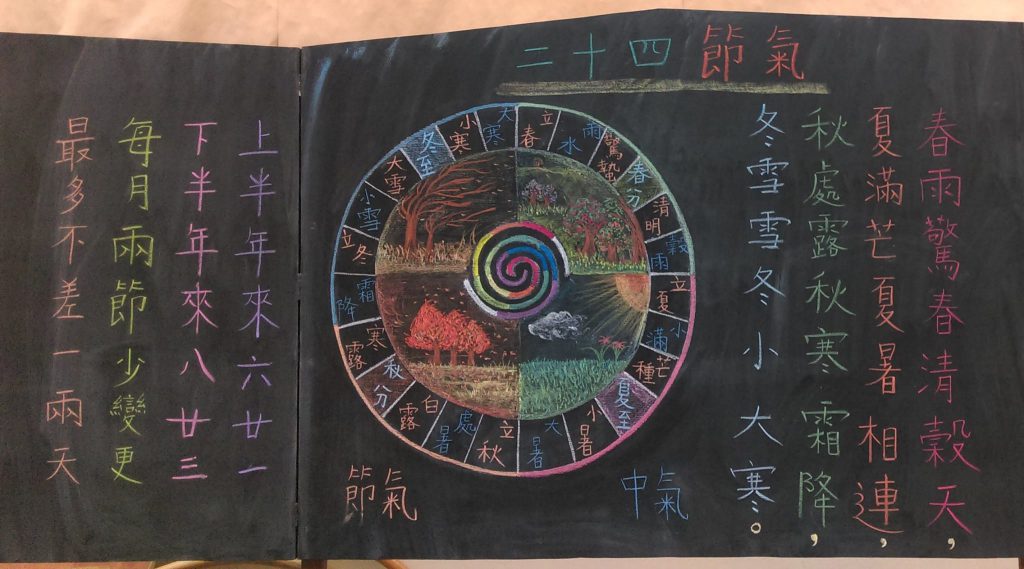 二十四節氣
春雨驚春清穀天，
夏滿芒夏暑相連，
秋處露秋寒霜降，
冬雪雪冬小大寒。
立春
雨水
驚蟄
春分
清明
穀雨
立夏
小滿
芒種
夏至
小暑
大暑
立秋
處暑
白露
秋分
寒露
霜降
立冬
小雪
大雪
冬至
小寒
大寒
中氣
節氣
上半年來六廿一
下半年來八廿三
每月兩節少變更
最多不差一兩天